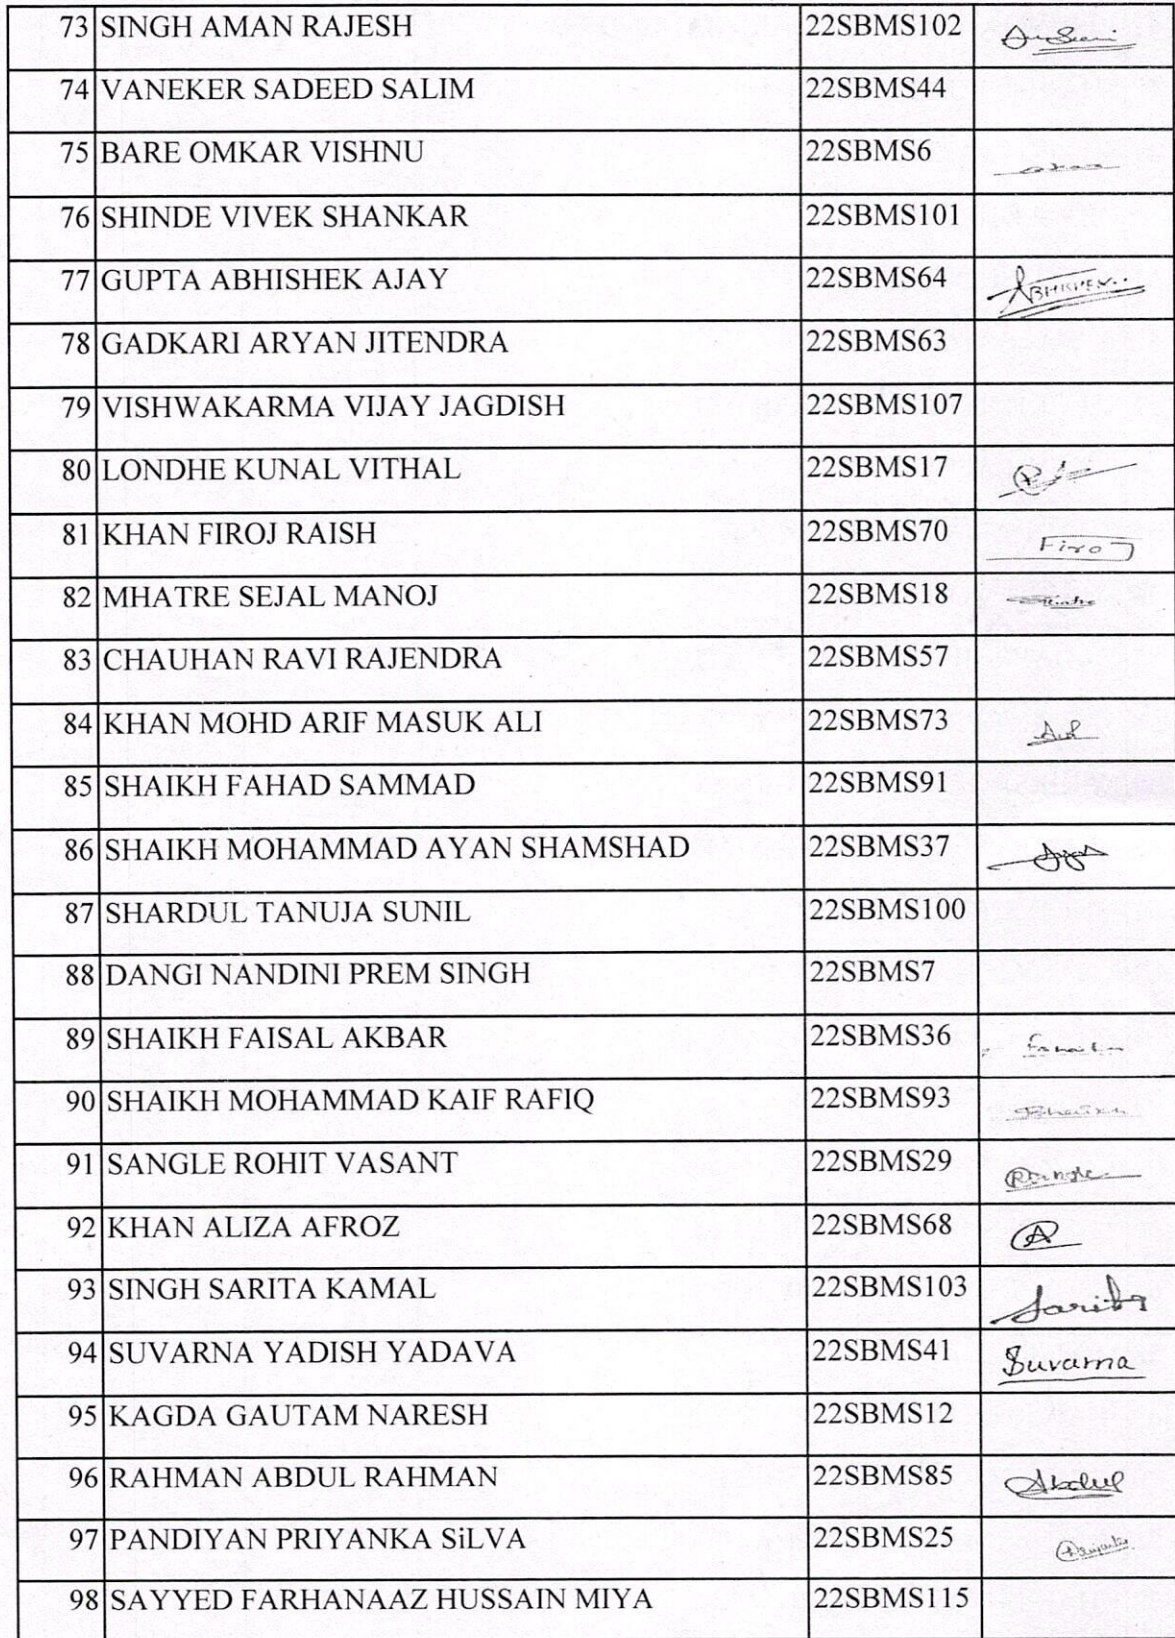 73 SINGH AMAN RAJESH 22SBMS102
74 VANEKER SADEED SALIM 22SBMS44
75 BARE OMKAR VISHNU 22SBMS6
76 SHINDE VIVEK SHANKAR 22SBMS101
77 GUPTA ABHISHEK AJAY 22SBMS64 ABHISHEK..
78 GADKARI ARYAN JITENDRA 22SBMS63
79 VISHWAKARMA VIJAY JAGDISH 22SBMS107
80 LONDHE KUNAL VITHAL 22SBMS17
81 KHAN FIROJ RAISH 22SBMS70 Firoj
82 MHATRE SEJAL MANOJ 22SBMS18
83 CHAUHAN RAVI RAJENDRA 22SBMS57
84 KHAN MOHD ARIF MASUK ALI 22SBMS73
85 SHAIKH FAHAD SAMMAD 22SBMS91
86 SHAIKH MOHAMMAD AYAN SHAMSHAD 22SBMS37
87 SHARDUL TANUJA SUNIL 22SBMS100
88 DANGI NANDINI PREM SINGH 22SBMS7
89 SHAIKH FAISAL AKBAR 22SBMS36
90 SHAIKH MOHAMMAD KAIF RAFIQ 22SBMS93 Shaikh
91 SANGLE ROHIT VASANT 22SBMS29
92 KHAN ALIZA AFROZ 22SBMS68 A
93 SINGH SARITA KAMAL 22SBMS103 Sarita
94 SUVARNA YADISH YADAVA 22SBMS41 Suvarna
95 KAGDA GAUTAM NARESH 22SBMS12
96 RAHMAN ABDUL RAHMAN 22SBMS85 Abdul
97 PANDIYAN PRIYANKA SiLVA 22SBMS25 Priyanka
98 SAYYED FARHANAAZ HUSSAIN MIYA 22SBMS115